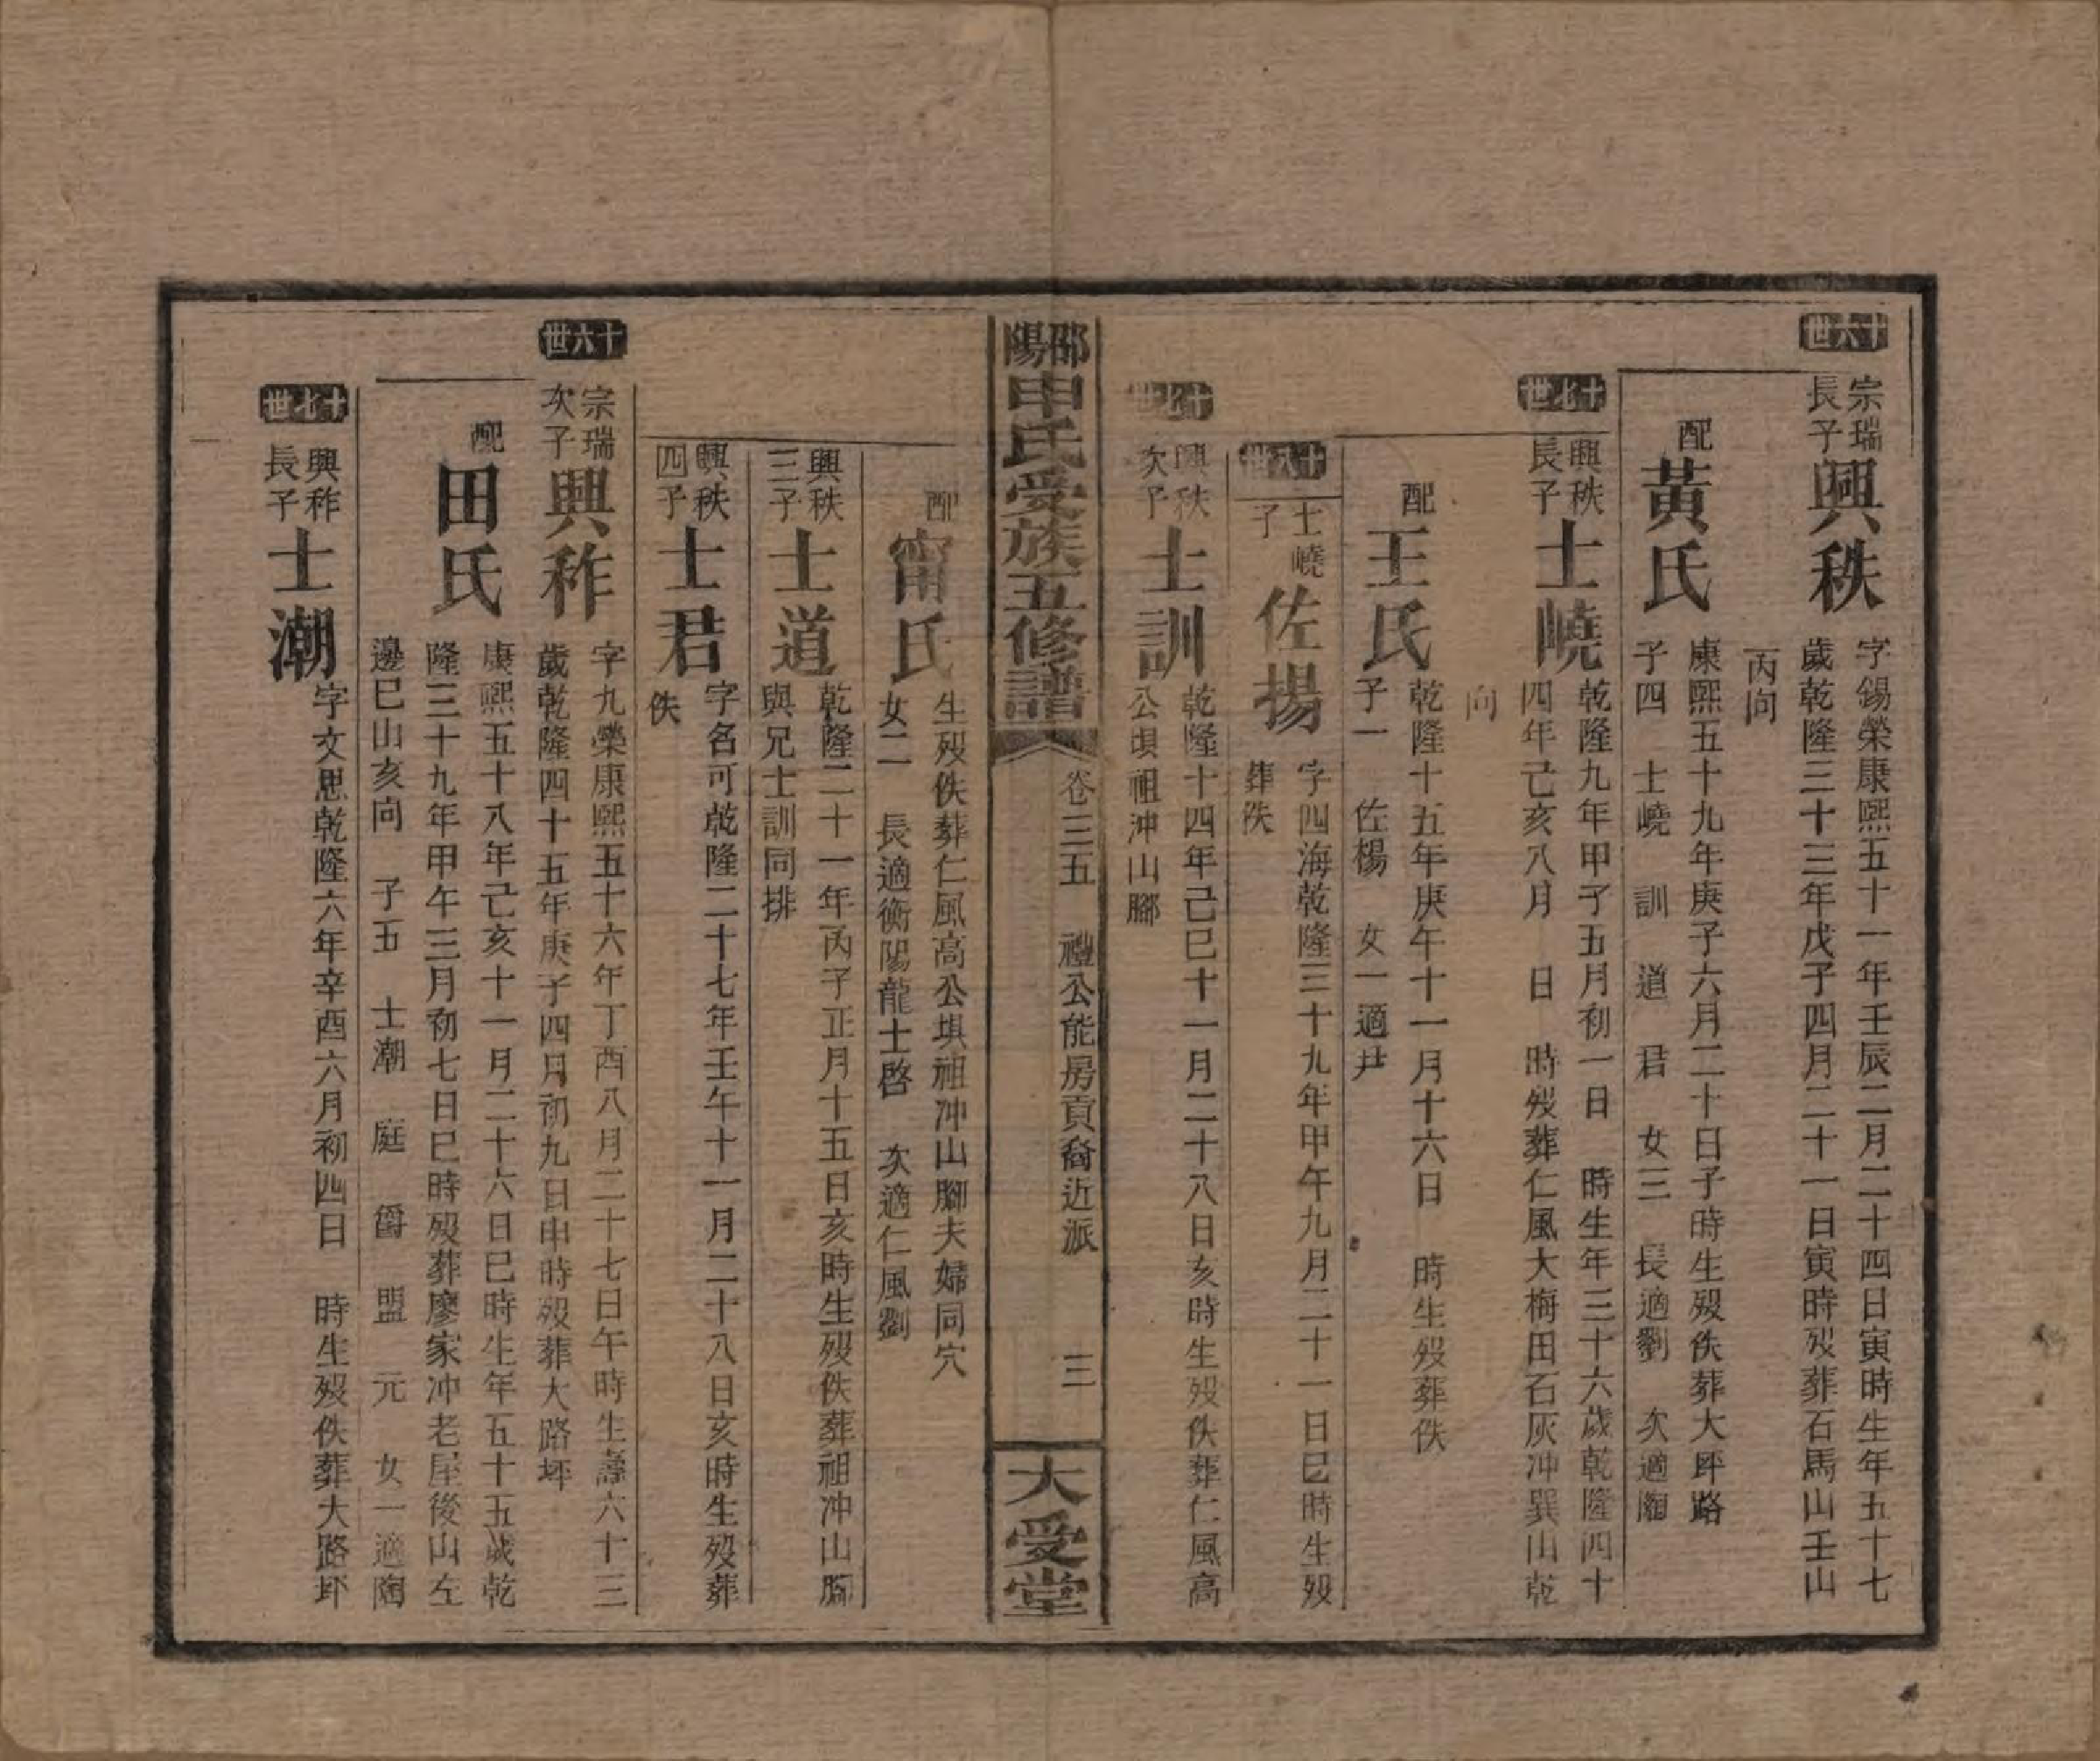 十六世
宗瑞長子興秩
字錫榮康熙五十一年壬辰二月二十四日寅時生年五十七
歲乾隆三十三年戊子四月二十一日寅時歿葬石馬山壬山
丙向
配黃氏
康熙五十九年庚子六月二十日子時生歿佚葬大坪路
子四 士嶢 訓 道 君 女三 長適劉 次適
十七世
興秩長子士嶢
乾隆九年甲子五月初一日 時生年三十六歲乾隆四十
四年己亥八月 日 時歿葬仁風大梅田石灰冲巽山乾
向
配王氏
乾隆十五年庚午十一月十六日 時生歿葬佚
子一 佐楊 女一適尹
十八世
士嶢子佐揚
字四海乾隆三十九年甲午九月二十一日巳時生歿
葬佚
十七世
興秩次子士訓
乾隆十四年己巳十一月二十八日亥時生歿佚葬仁風高
公塤祖冲山腳
邵陽申氏受族五修譜
卷三五 禮公能房貢裔近派 三
大受堂
配甯氏
生歿佚葬仁風高公塤祖冲山腳夫婦同穴
女二 長適衡陽龍士啓 次適仁風劉
興秩三子士道
乾隆二十一年丙子正月十五日亥時生歿佚葬祖冲山腳
與兄士訓同排
興秩四子士君
字名可乾隆二十七年壬午十一月二十八日亥時生歿葬
佚
十六世
宗瑞次子興秨
字九榮康熙五十六年丁酉八月二十七日午時生壽六十三
歲乾隆四十五年庚子四月初九日申時歿葬大路坪
配田氏
康熙五十八年己亥十一月二十六日巳時生年五十五歲乾
隆三十九年甲午三月初七日巳時歿葬廖家冲老屋後山左
邊巳山亥向 子五 士潮 庭 爵 盟 元 女一適陶
十七世
興秨長子士潮
字文思乾隆六年辛酉六月初四日 時生歿佚葬大路坪